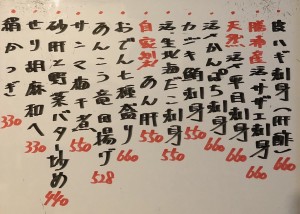 皮ハギ刺身(肝酢) 660
勝浦産 活サザエ刺身 660
天然 活平目刺身 660
活かんぱち刺身 660
カジキ鮪刺身 550
だこ刺身 550
自家製 あん肝 550
おでん七種盛り 660
あんこう竜田揚げ 528
サンマ梅干煮 550
砂肝と野菜バター炒め 440
せり胡麻和へ 330
絹かつぎ 330